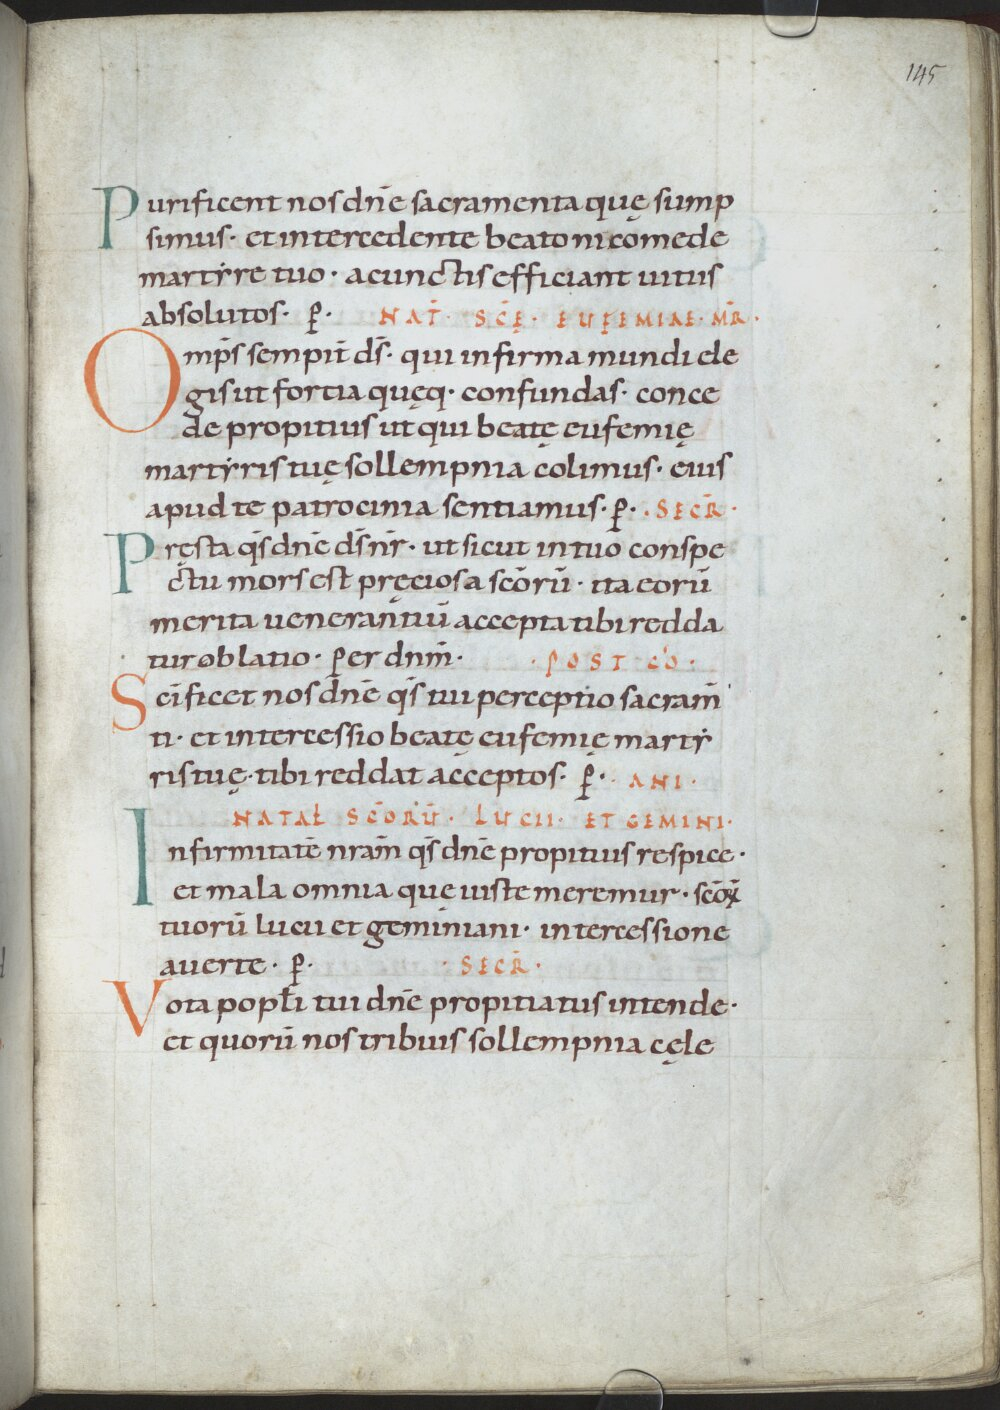 145
Purificent nos dn̄e sacramenta quę sump
simus· et intercedente beato nicomede
martẏre tuo· a cunctis efficiant uitiis
absolutos· P̄·   NAT̄· SC̄Ę· EUFEMIAE· MR̄·
Omp̄s sempit̄ ds̄· qui infirma mundi ele
gis ut fortia quęq· confundas· conce
de propitius ut qui beatę eufemię
martẏris tuę sollempnia colimus· eius
apud te patrocinia sentiamus· P̄· ·SECR̄·
Pręsta qs̄ dn̄e ds̄ nr̄· ut sicut in tuo conspe
ctu mors est pręciosa scōrū· ita eorū
merita uenerantiū accepta tibi redda
tur oblatio· Per dnm̄·   ·POST CŌ·
Sc̄ificet nos dn̄e qs̄ tui perceptio sacram̄
ti· et intercessio beatę eufemię martẏ
ris tuę· tibi reddat acceptos· P̄·   ANI·
NATAƚ SC̄ORŪ· LUCII· ET GEMINI·
Infirmitatē nrām qs̄ dn̄e propitius respice·
et mala omnia quę iuste meremur· scōꝝ
tuorū lucii et geminiani· intercessione
auerte· P̄·   ·SECR̄·
Vota popƚi tui dn̄e propitiatus intende·
et quorū nos tribuis sollempnia cęle